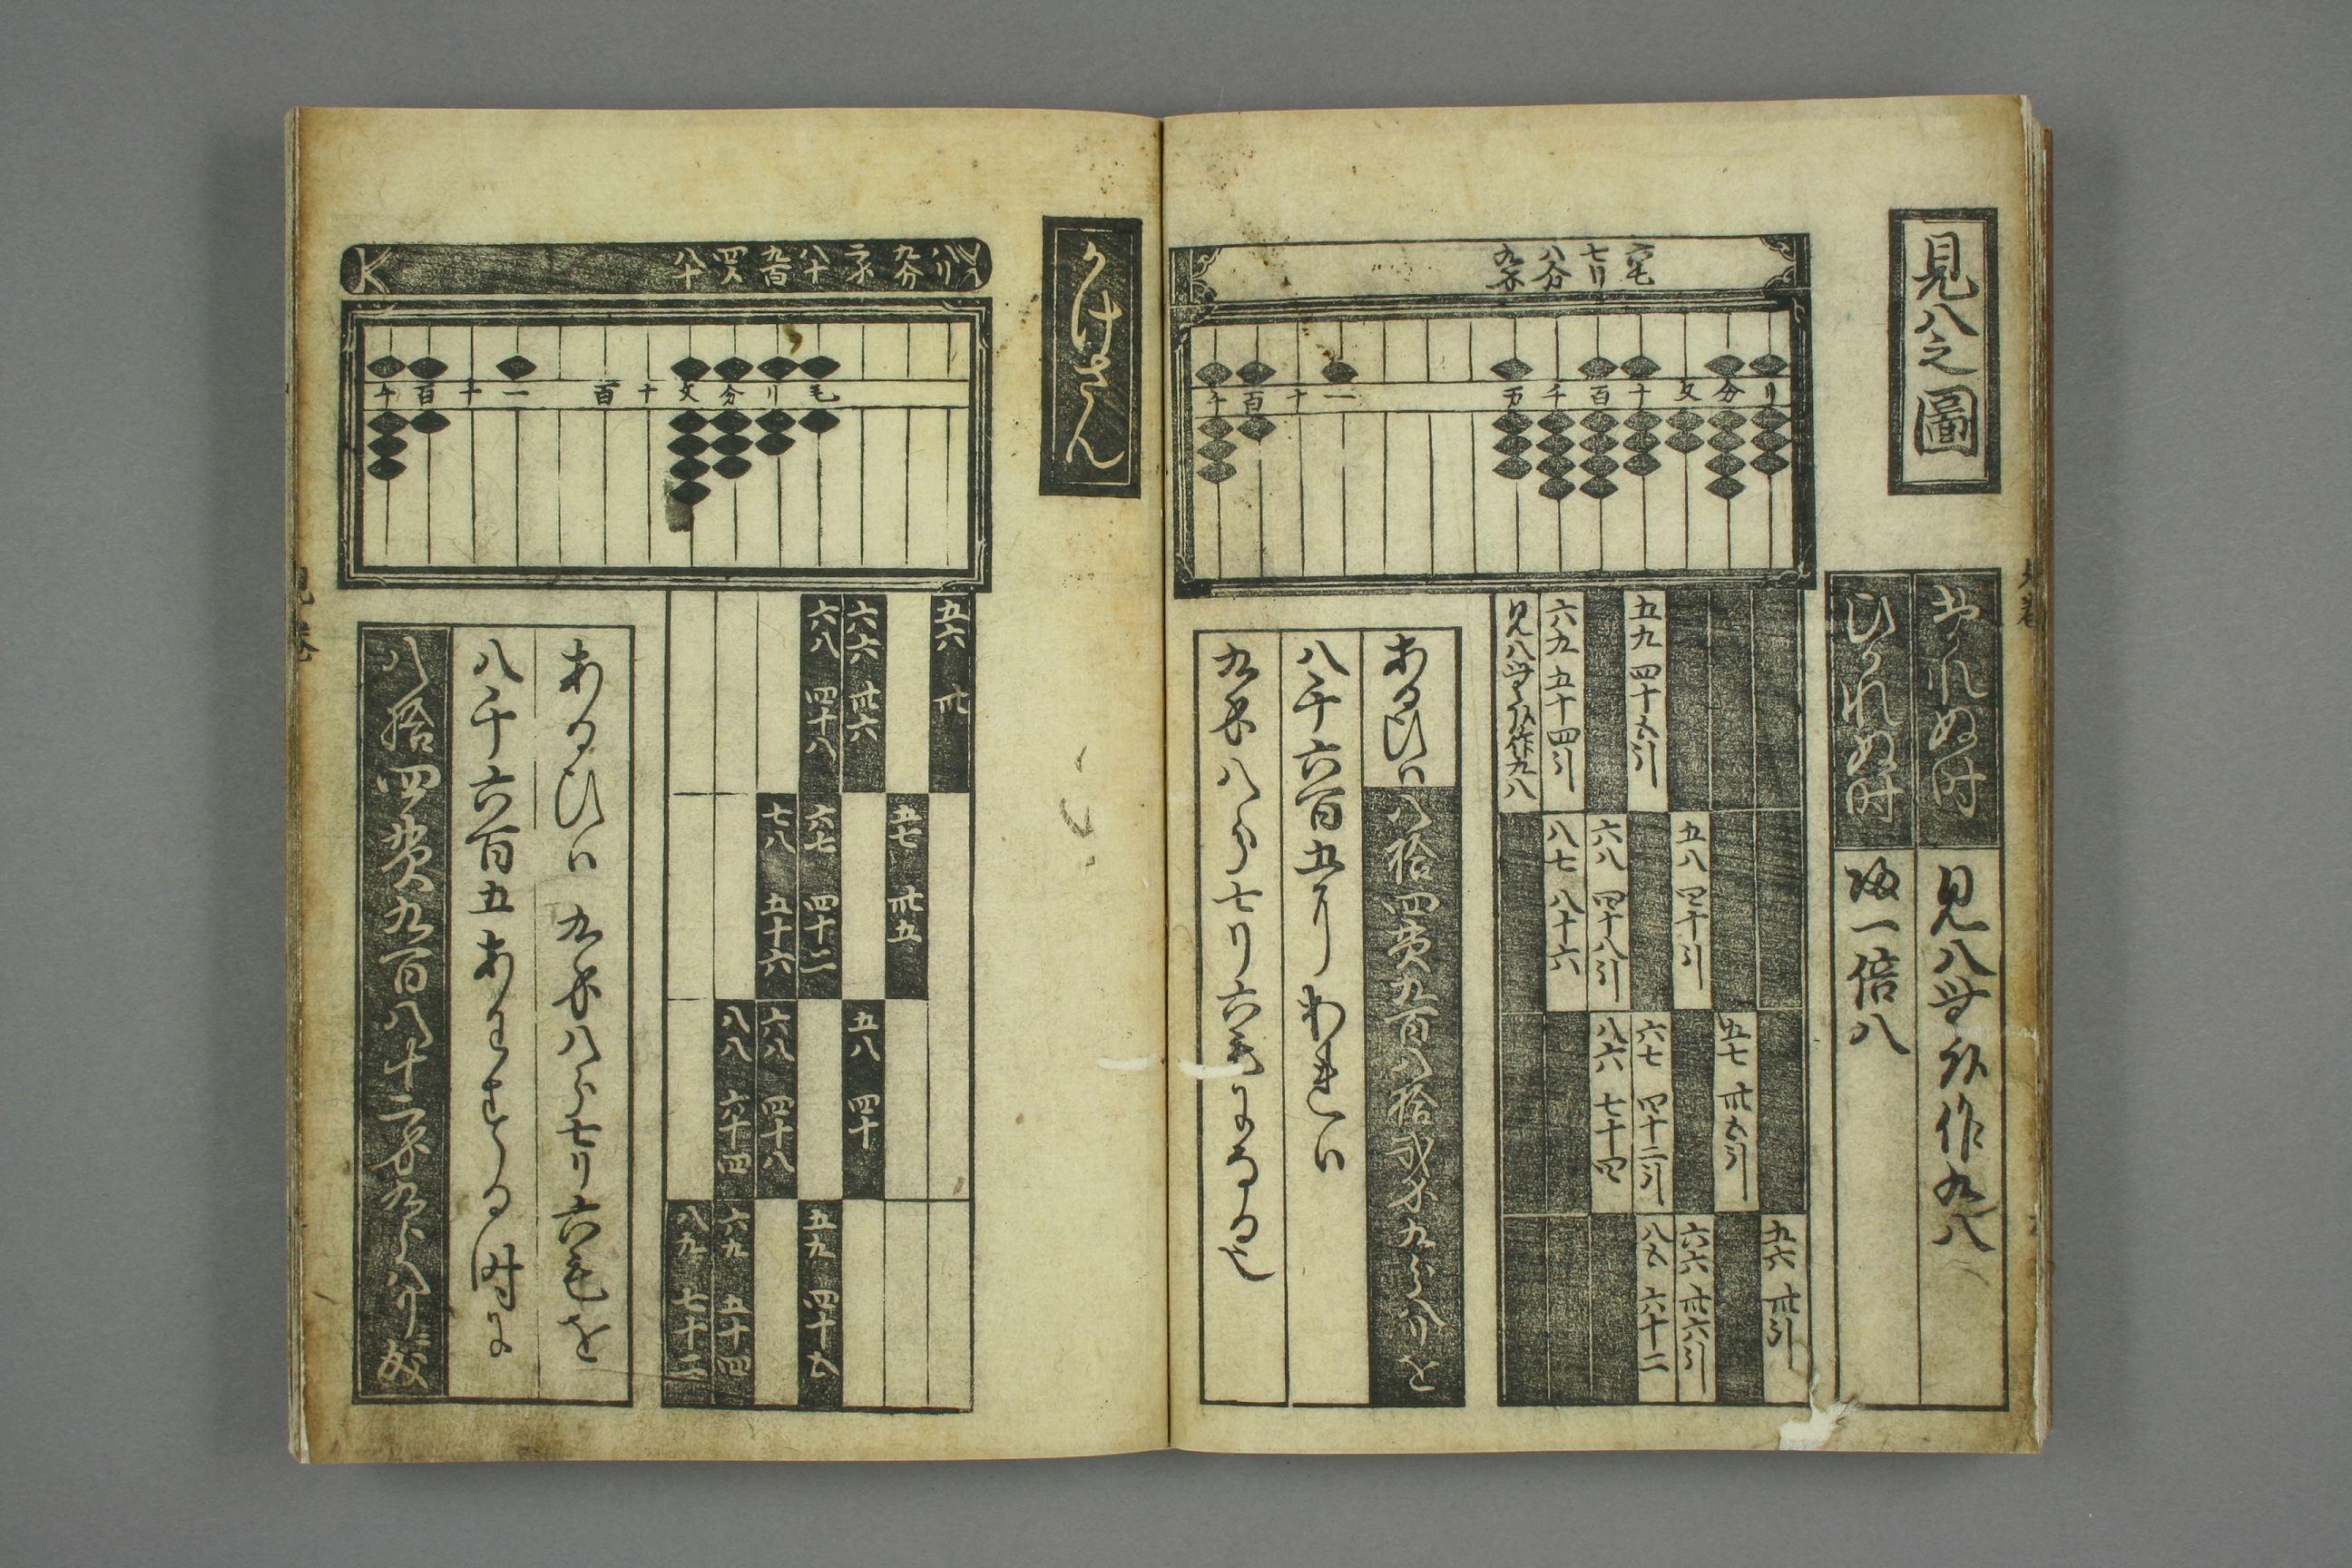 見八之圖
わられぬ時 見八無行作九八
ひかれぬ時 帰一倍八
六毛
七リ
八分
九匁
千 百 十 一 万 千 百 十 文 分 リ
五六 卅引
五七 卅五引
六六 卅六引
五八 四十引
六七 四十二引
八五 六十二
五九 四十五引
六八 四十八引
八六 七十四
六九 五十四引
八七 八十六
見八無行作九八
あるひハ八拾四貫九百八拾弐匁九分八リを
八千六百五リわれハ
九匁八分七リ六毛になる也
かけさん
八リ
九分
二匁
八十
九百
四〆
八十
千 百 十 一 百 十 文 分 リ 毛
五六 卅
五七 卅五
六六 卅六
五八 四十
六八 四十八
六七 四十二
五九 四十五
七八 五十六
六八 四十八
八八 六十四
六九 五十四
八九 七十二
あるひハ九匁八分七リ六毛を
八千六百五あはする時に
八拾四貫九百八十二匁九分八リ